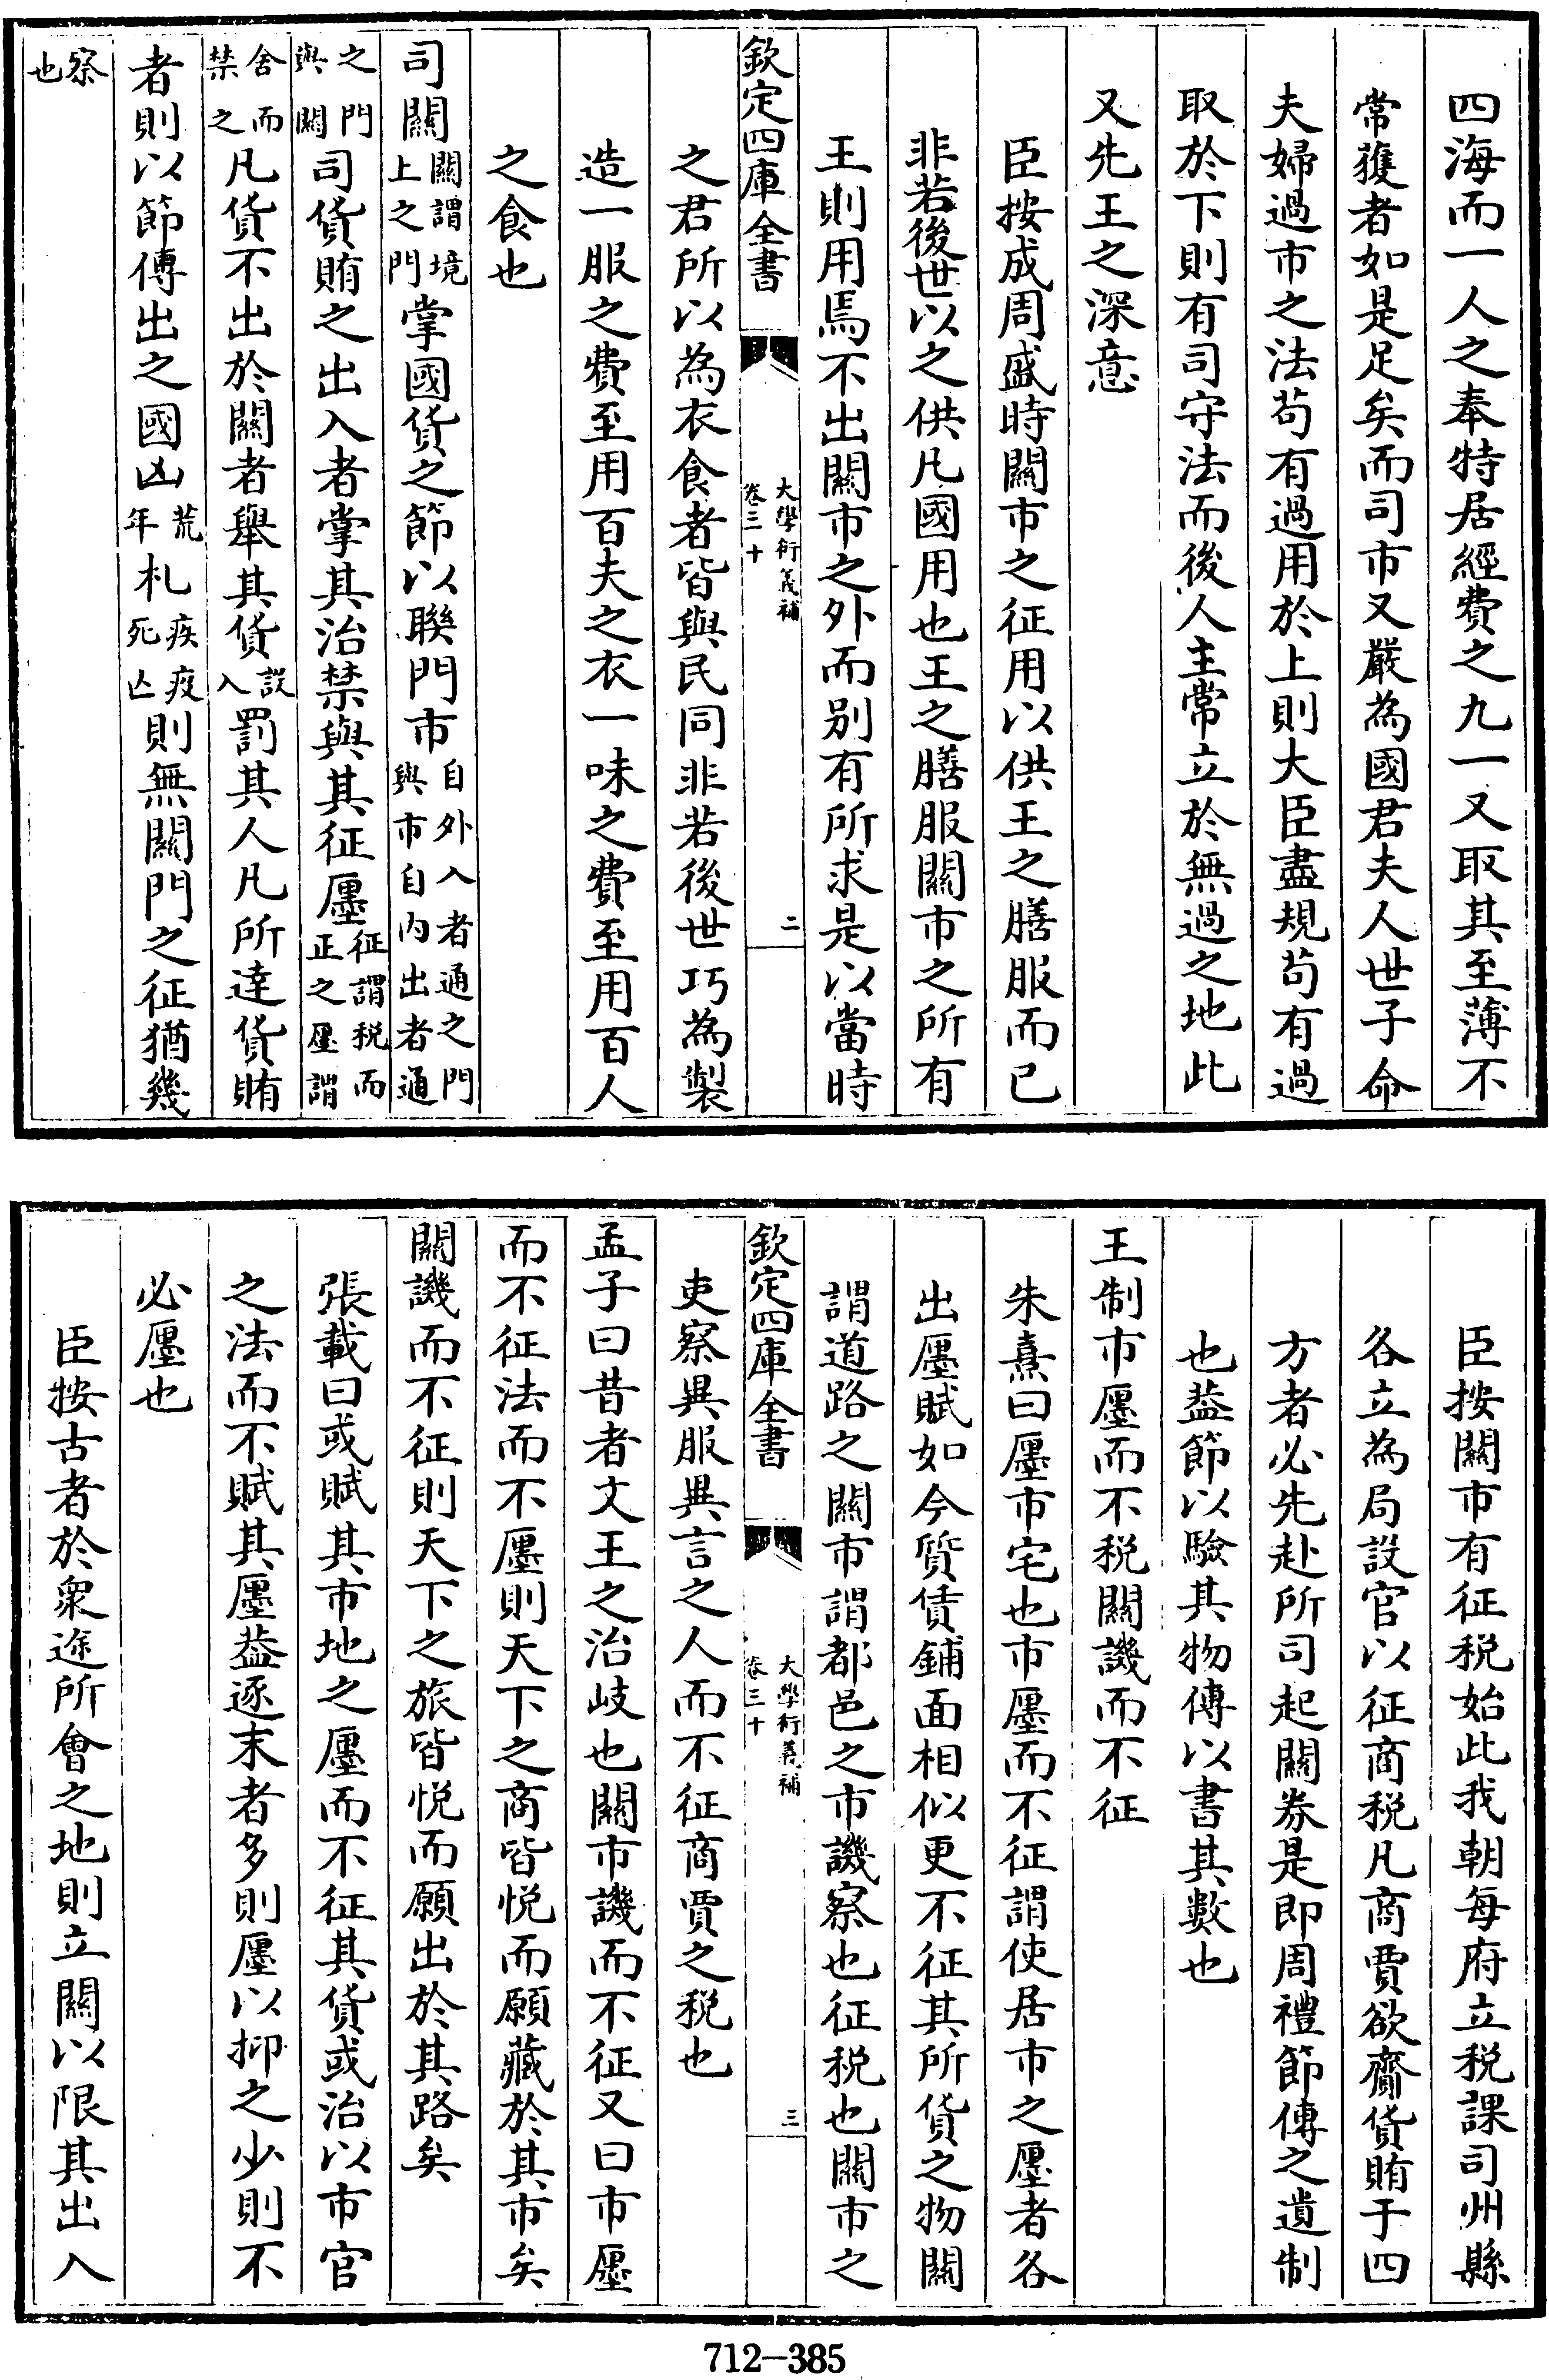 四海而一人之奉特居經費之九一又取其至薄不
常獲者如是足矣而司市又嚴為國君夫人世子命
夫婦過市之法苟有過用於上則大臣盡規苟有過
取於下則有司守法而後人主常立於無過之地此
又先王之深意
臣按成周盛時關市之征用以供王之膳服而已
非若後世以之供凡國用也王之膳服關市之所有
王則用焉不出關市之外而別有所求是以當時
欽定四庫全書
大學衍義補
卷三十
二
之君所以為衣食者皆與民同非若後世巧為製
造一服之費至用百夫之衣一味之費至用百人
之食也
司關關謂境上之門掌國貨之節以聯門市自外入者通之門與市自内出者通
之門與關司貨賄之出入者掌其治禁與其征廛征謂税而正之廛謂
舍而禁之凡貨不出於關者舉其貨設入罰其人凡所達貨賄
者則以節傳出之國凶荒年札疾疫死亡則無關門之征猶幾
察也
臣按關市有征税始此我朝每府立税課司州縣
各立為局設官以征商税凡商賈欲齎貨賄于四
方者必先赴所司起關券是即周禮節傳之遺制
也葢節以驗其物傳以書其數也
王制市廛而不税關譏而不征
朱熹曰廛市宅也市廛而不征謂使居市之廛者各
出廛賦如今質賃鋪面相似更不征其所貨之物關
謂道路之關市謂都邑之市譏察也征税也關市之
欽定四庫全書
大學衍義補
卷三十
三
吏察異服異言之人而不征商賈之税也
孟子曰昔者文王之治岐也關市譏而不征又曰市廛
而不征法而不廛則天下之商皆悦而願藏於其市矣
關譏而不征則天下之旅皆悦而願出於其路矣
張載曰或賦其市地之廛而不征其貨或治以市官
之法而不賦其廛葢逐末者多則廛以抑之少則不
必廛也
臣按古者於衆途所會之地則立關以限其出入
712-385